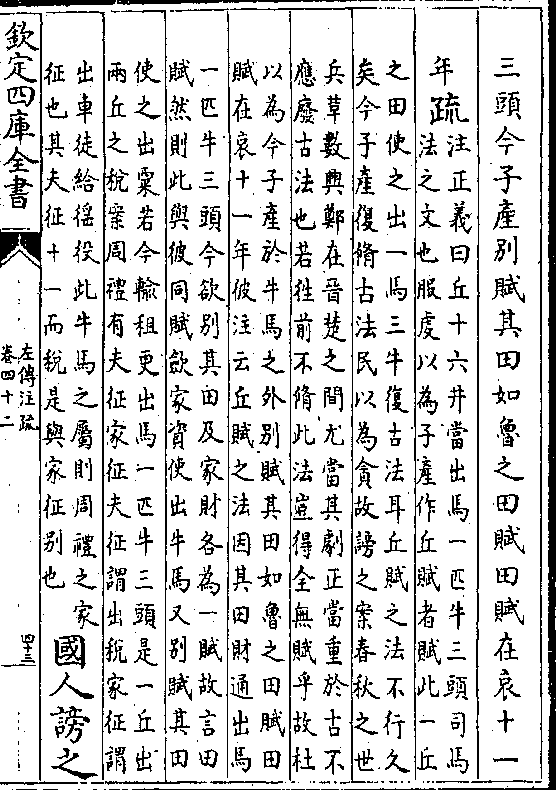 三頭今子產別賦其田如魯之田賦田賦在哀十一
年
疏
注正義曰丘十六井當出馬一匹牛三頭司馬
法之文也服虔以為子產作丘賦者賦此一丘
之田使之出一馬三牛復古法耳丘賦之法不行久
矣今子產復脩古法民以為貪故謗之案春秋之世
兵革數興鄭在晉楚之間尤當其劇正當重於古不
應廢古法也若往前不脩此法豈得全無賦乎故杜
以為今子產於牛馬之外別賦其田如魯之田賦田
賦在哀十一年彼注云丘賦之法因其田財通出馬
一匹牛三頭今欲別其田及家財各為一賦故言田
賦然則此與彼同賦斂家資使出牛馬又別賦其田
使之出粟若今輸租更出馬一匹牛三頭是一丘出
兩丘之稅案周禮有夫征家征夫征謂出稅家征謂
出車徒給徭役此牛馬之屬則周禮之家
征也其夫征十一而稅是與家征別也
國人謗之
欽定四庫全書
左傳注疏
卷四十二
四十三